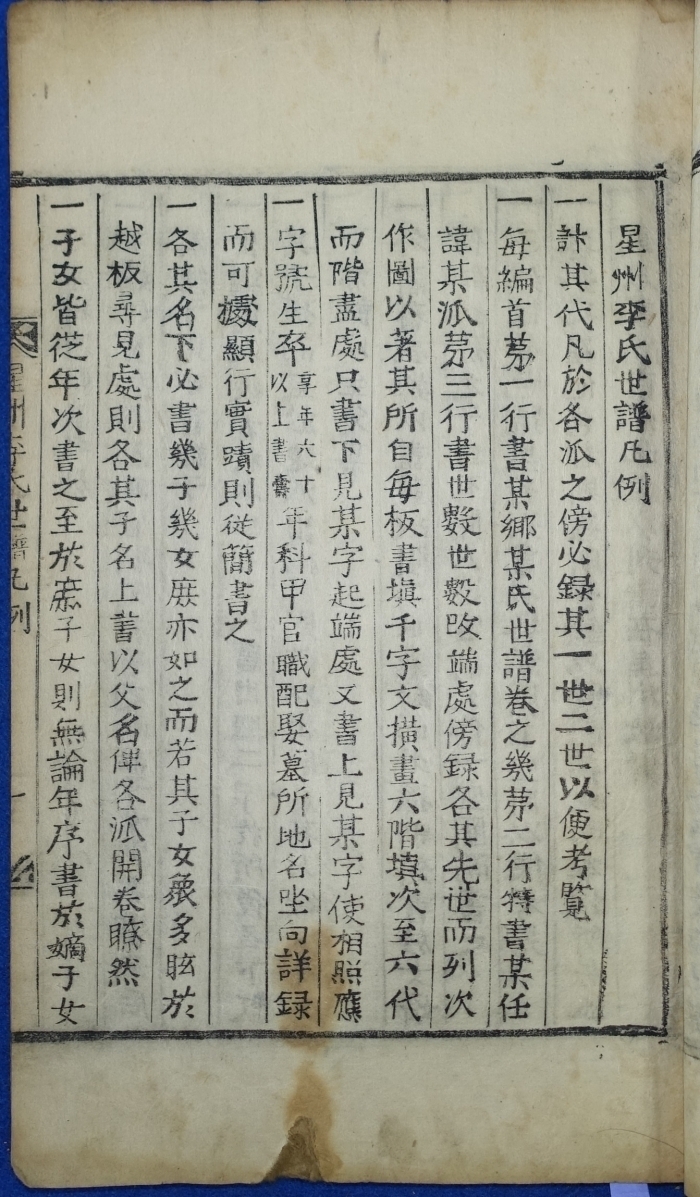 星州李氏世譜凡例
一計其代凡於各派之傍必録其一世二世以便考覽
一每編首苐一行書某鄉某氏世譜卷之幾苐二行特書某任
諱某派苐三行書世數世數改端處傍録各其先世而列次
作圖以著其所自每板書塡千字文橫畫六階塡次至六代
而階盡處只書下見某字起端處又書上見某字使相照應
一字號生卒享年六十以上書壽年科甲官職配娶墓所地名坐向詳録
而可據顯行實蹟則從簡書之
一各其名下必書幾子幾女庶亦如之而若其子女衆多眩於
越板尋見處則各其子名上書以父名俾各派開卷瞭然
一子女皆從年次書之至於庶子女則無論年序書於嫡子女
星州李氏世譜凡例 一